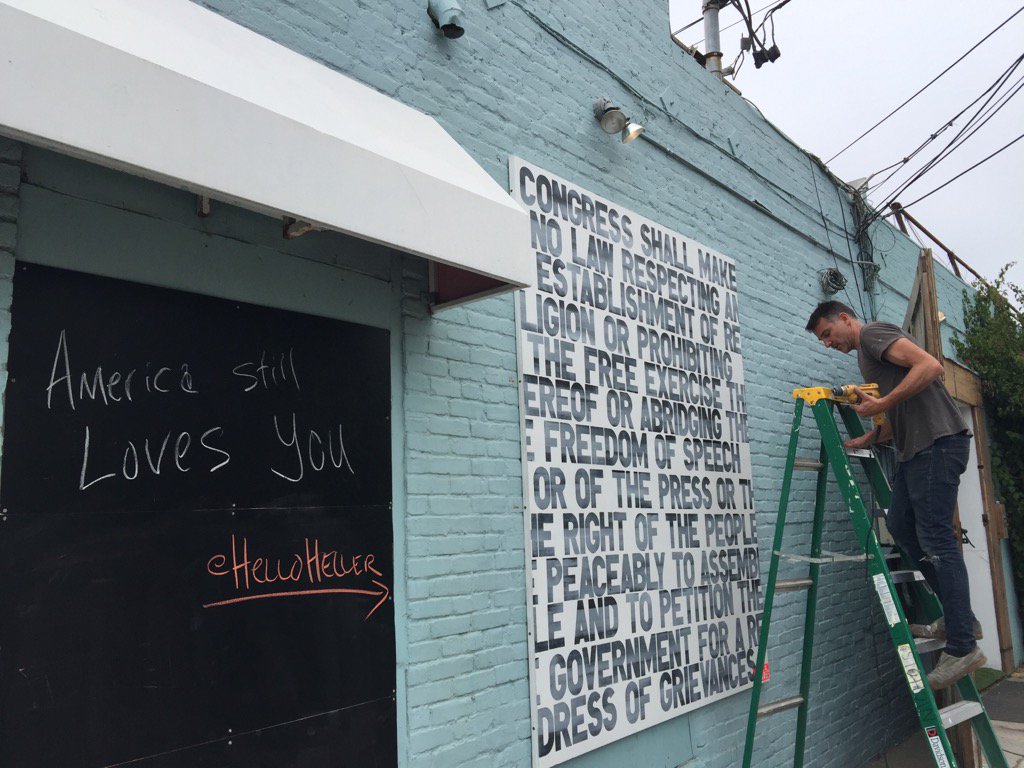 America still
Loves You
@HelloHeller
CONGRESS SHALL MAKE
NO LAW RESPECTING AN
ESTABLISHMENT OF RE
LIGION OR PROHIBITING
THE FREE EXERCISE TH
EREOF OR ABRIDGING TH
E FREEDOM OF SPEECH
OR OF THE PRESS OR TH
E RIGHT OF THE PEOPLE
E PEACEABLY TO ASSEMB
LE AND TO PETITION THE
E GOVERNMENT FOR A RE
DRESS OF GRIEVANCES
Davidson